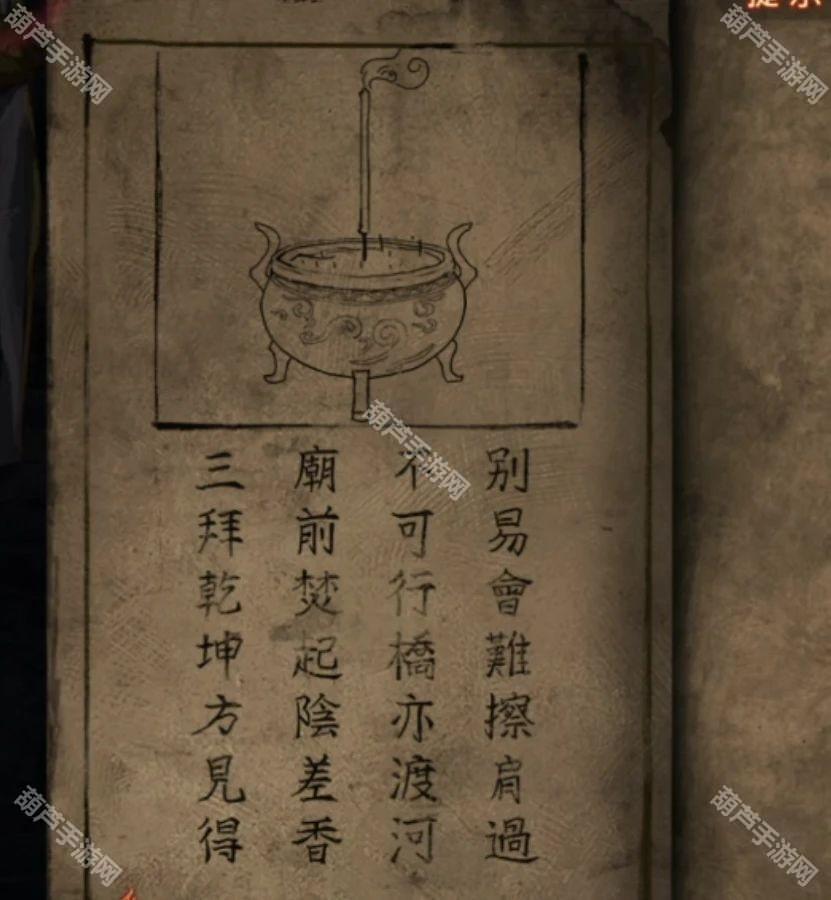 別易會難擦肩過
不可行橋亦渡河
廟前焚起陰差香
三拜乾坤方見得
提示
葫芦手游网
葫芦手游网
葫芦手游网
葫芦手游网
葫芦手游网